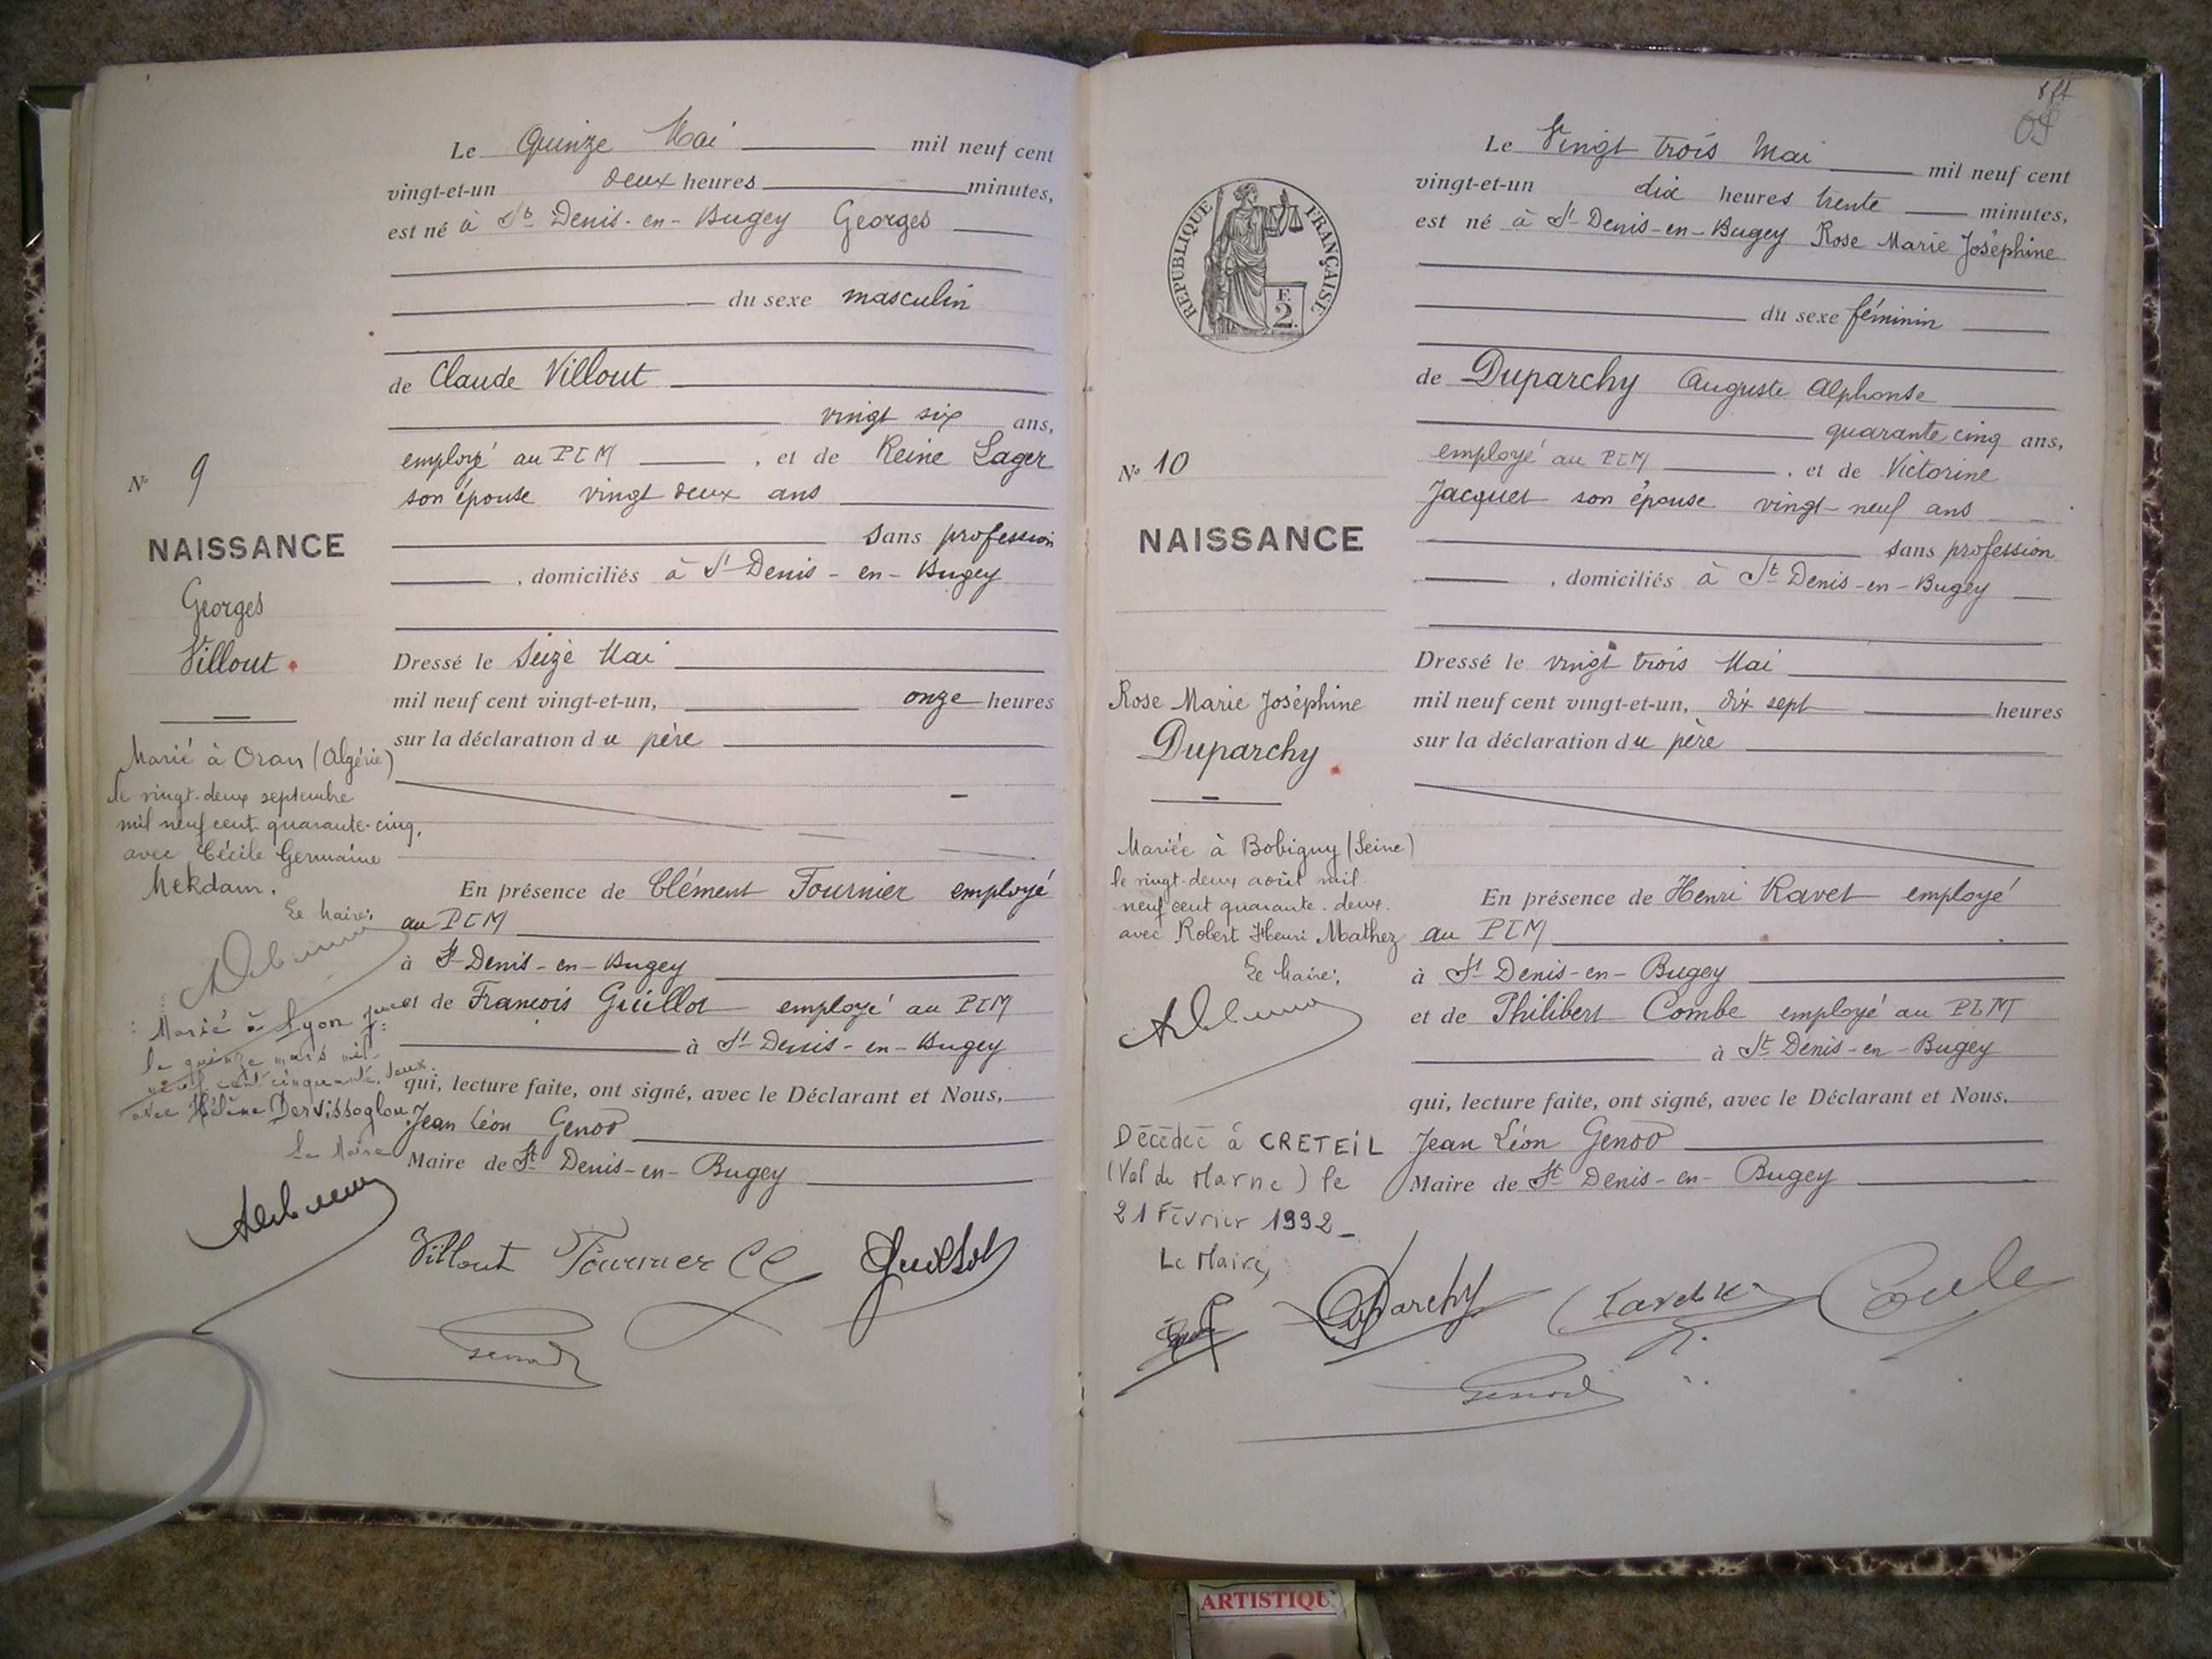 Le Quinze Mai mil neuf cent
vingt-et-un deux heures minutes,
est né à St Denis-en-Bugey Georges
du sexe masculin
de Claude Villout
vingt six ans,
employé au PLM , et de Reine Lager
son épouse vingt deux ans
sans profession
, domiciliés à St Denis-en-Bugey
Dressé le Seize Mai
mil neuf cent vingt-et-un, onze heures
sur la déclaration du père
En présence de Clément Fournier employé
au PLM
à St Denis-en-Bugey
et de François Guillot employé au PLM
à St Denis-en-Bugey
qui, lecture faite, ont signé, avec le Déclarant et Nous,
Jean Léon Genod
Maire de St Denis-en-Bugey
Villout Fournier Cl Guillot
Genod
N° 9
NAISSANCE
Georges
Villout
Marié à Oran (Algérie)
le vingt-deux septembre
mil neuf cent quarante-cinq,
avec Cécile Germaine
Mekdam.
Le Maire:
Marié à Lyon
le quinze mars mil
neuf cent cinquante-deux
avec Hélène Dervissoglou.
Le Maire
Le Vingt trois Mai mil neuf cent
vingt-et-un dix heures trente minutes,
est né à St Denis-en-Bugey Rose Marie Joséphine
du sexe féminin
de Duparchy Auguste Alphonse
quarante cinq ans,
employé au PLM , et de Victorine
Jacquet son épouse vingt-neuf ans
sans profession
, domiciliés à St Denis-en-Bugey
Dressé le vingt trois Mai
mil neuf cent vingt-et-un, dix sept heures
sur la déclaration du père
En présence de Henri Ravet employé
au PLM
à St Denis-en-Bugey
et de Philibert Combe employé au PLM
à St Denis-en-Bugey
qui, lecture faite, ont signé, avec le Déclarant et Nous,
Jean Léon Genod
Maire de St Denis-en-Bugey
Duparchy
Genod
RÉPUBLIQUE FRANÇAISE
F.
2.
N° 10
NAISSANCE
Rose Marie Joséphine
Duparchy
Mariée à Bobigny (Seine)
le vingt-deux août mil
neuf cent quarante-deux
avec Robert Henri Mathez
Le Maire:
Décédée à CRETEIL
(Val de Marne) le
21 Février 1992
Le Maire,
ARTISTIQU